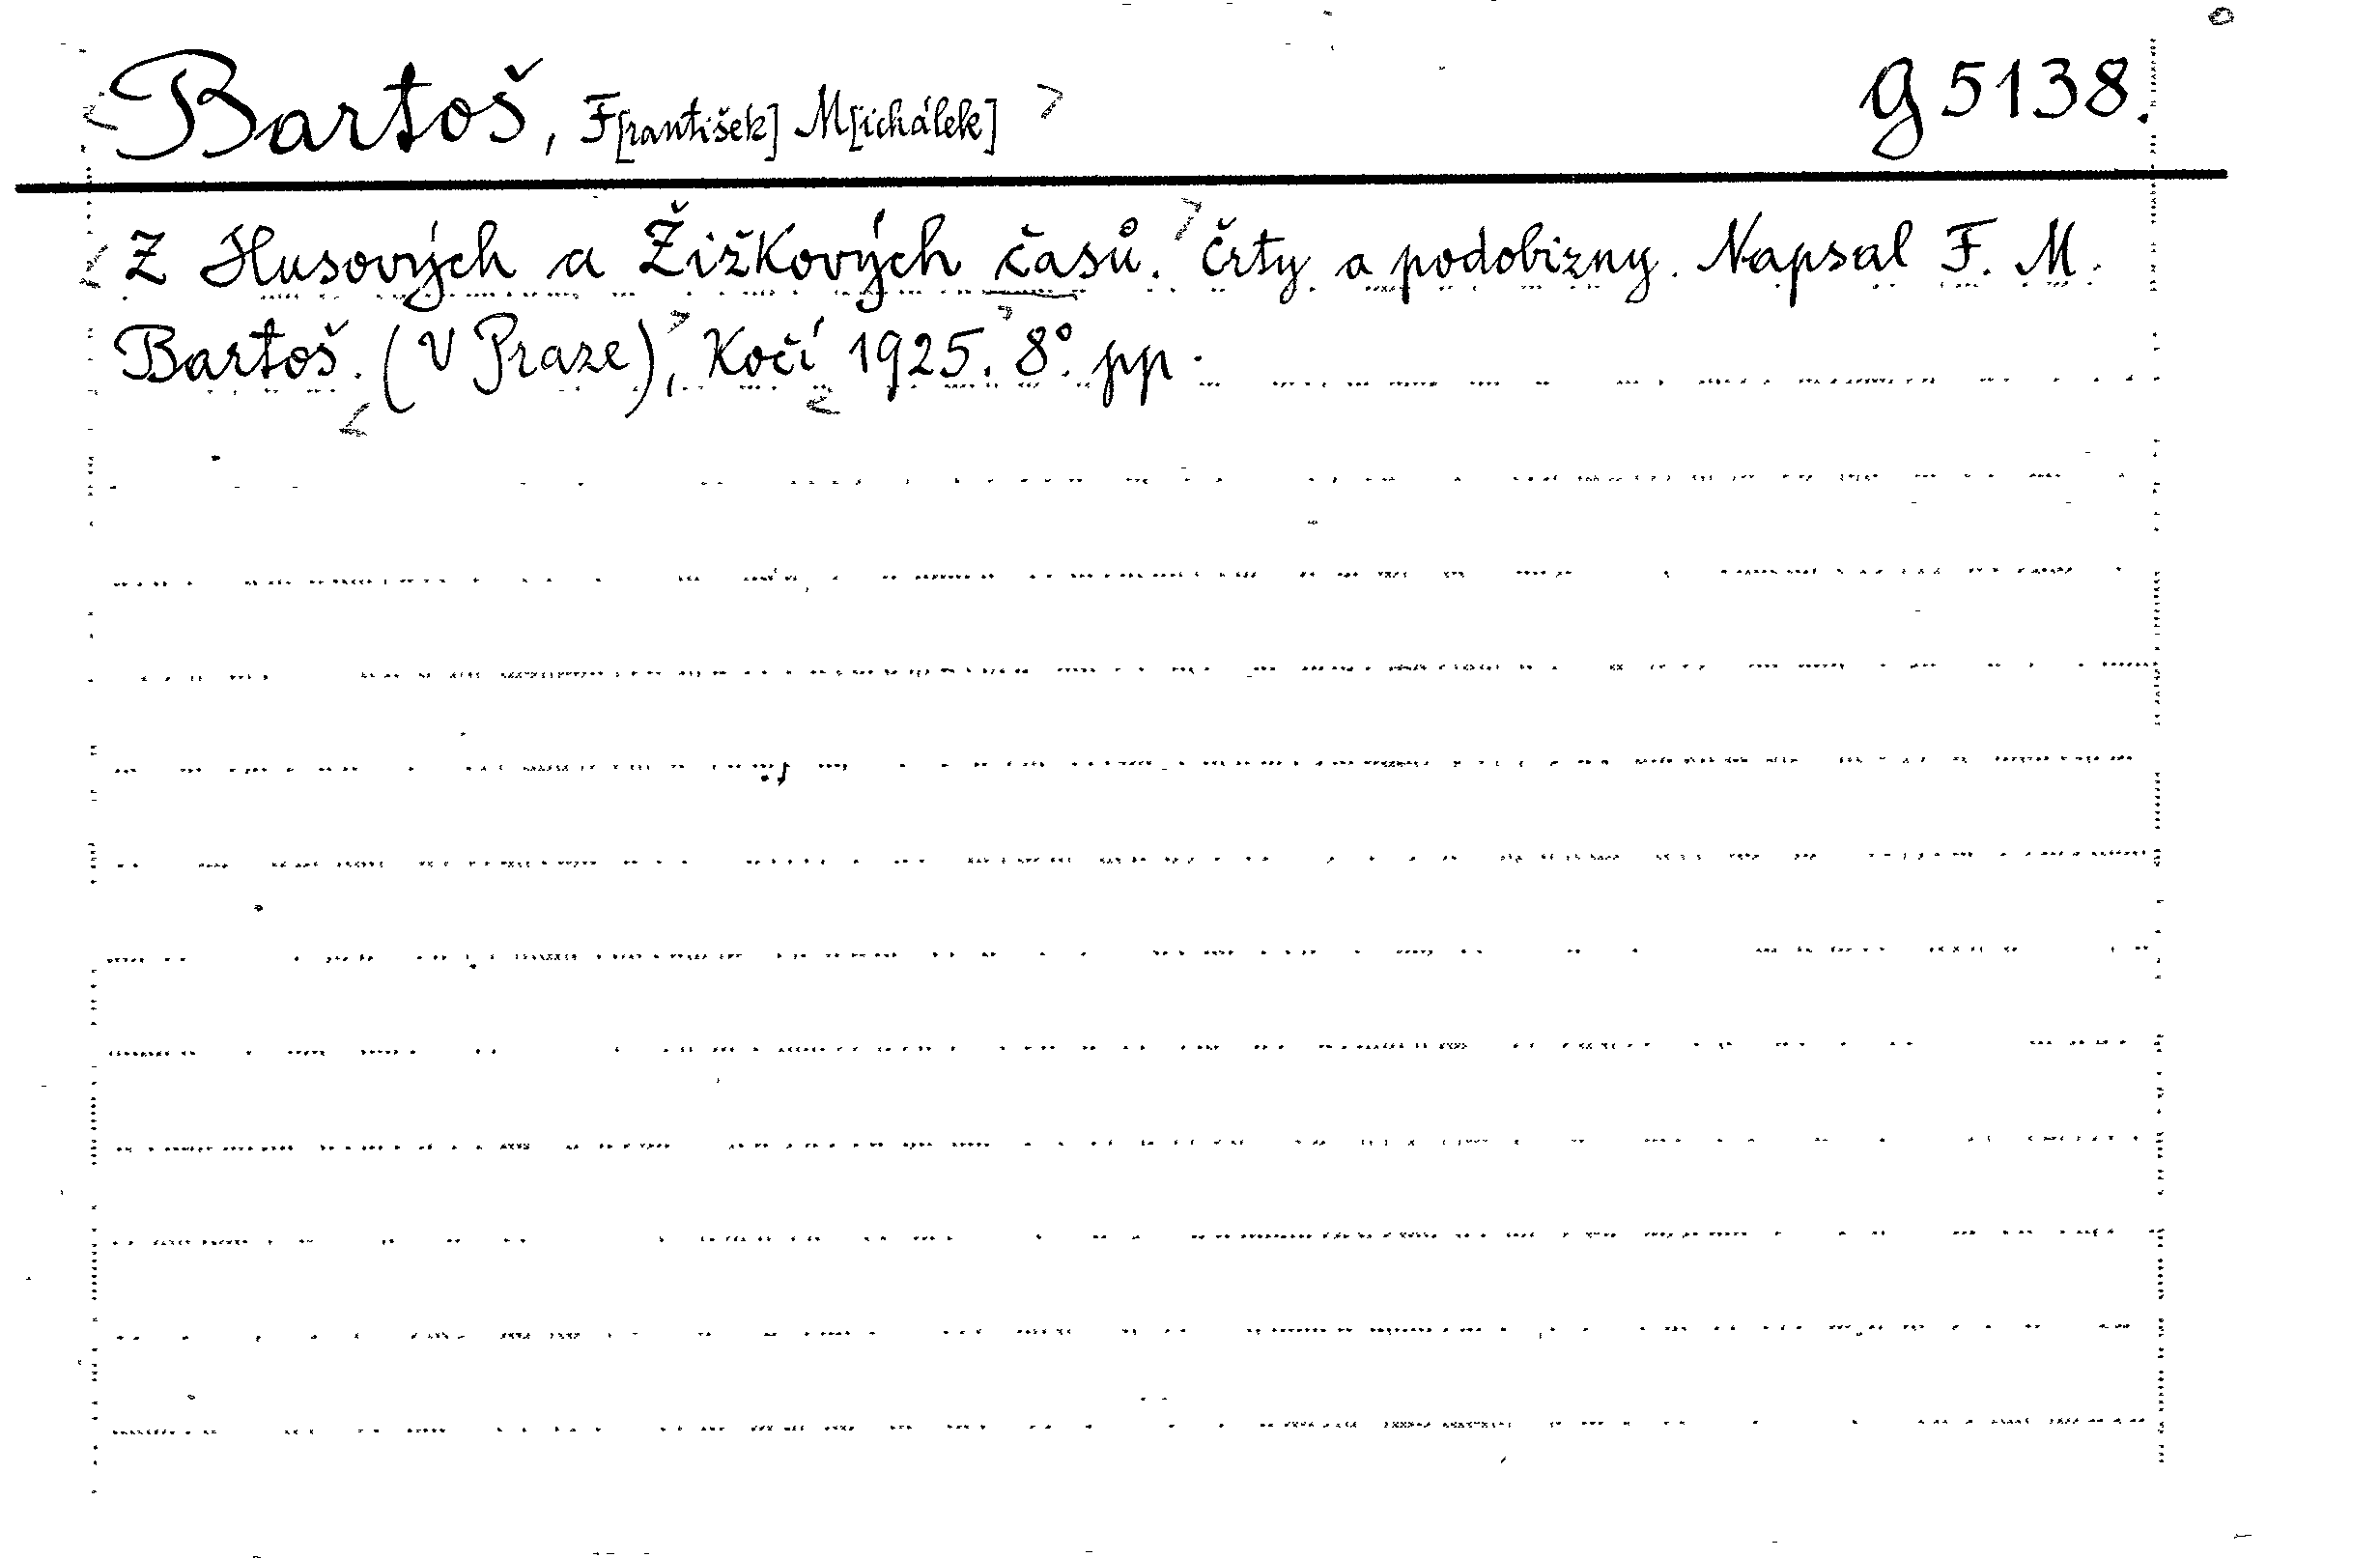 Bartoš, F[rantišek] M[ichálek] G 5138.
Z Husových a Žižkových časů. Črty a podobizny. Napsal F. M.
Bartoš. (V Praze), Kočí 1925. 8°. pp.